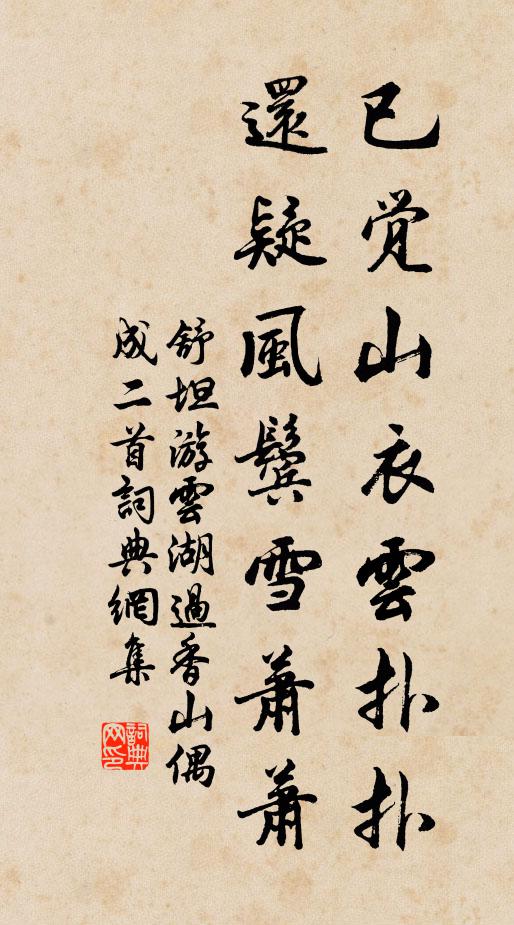 已觉山衣雲扑扑
還疑風鬓雪蕭蕭
舒坦游雲湖過香山偶
成二首詞典網集
詞典网印